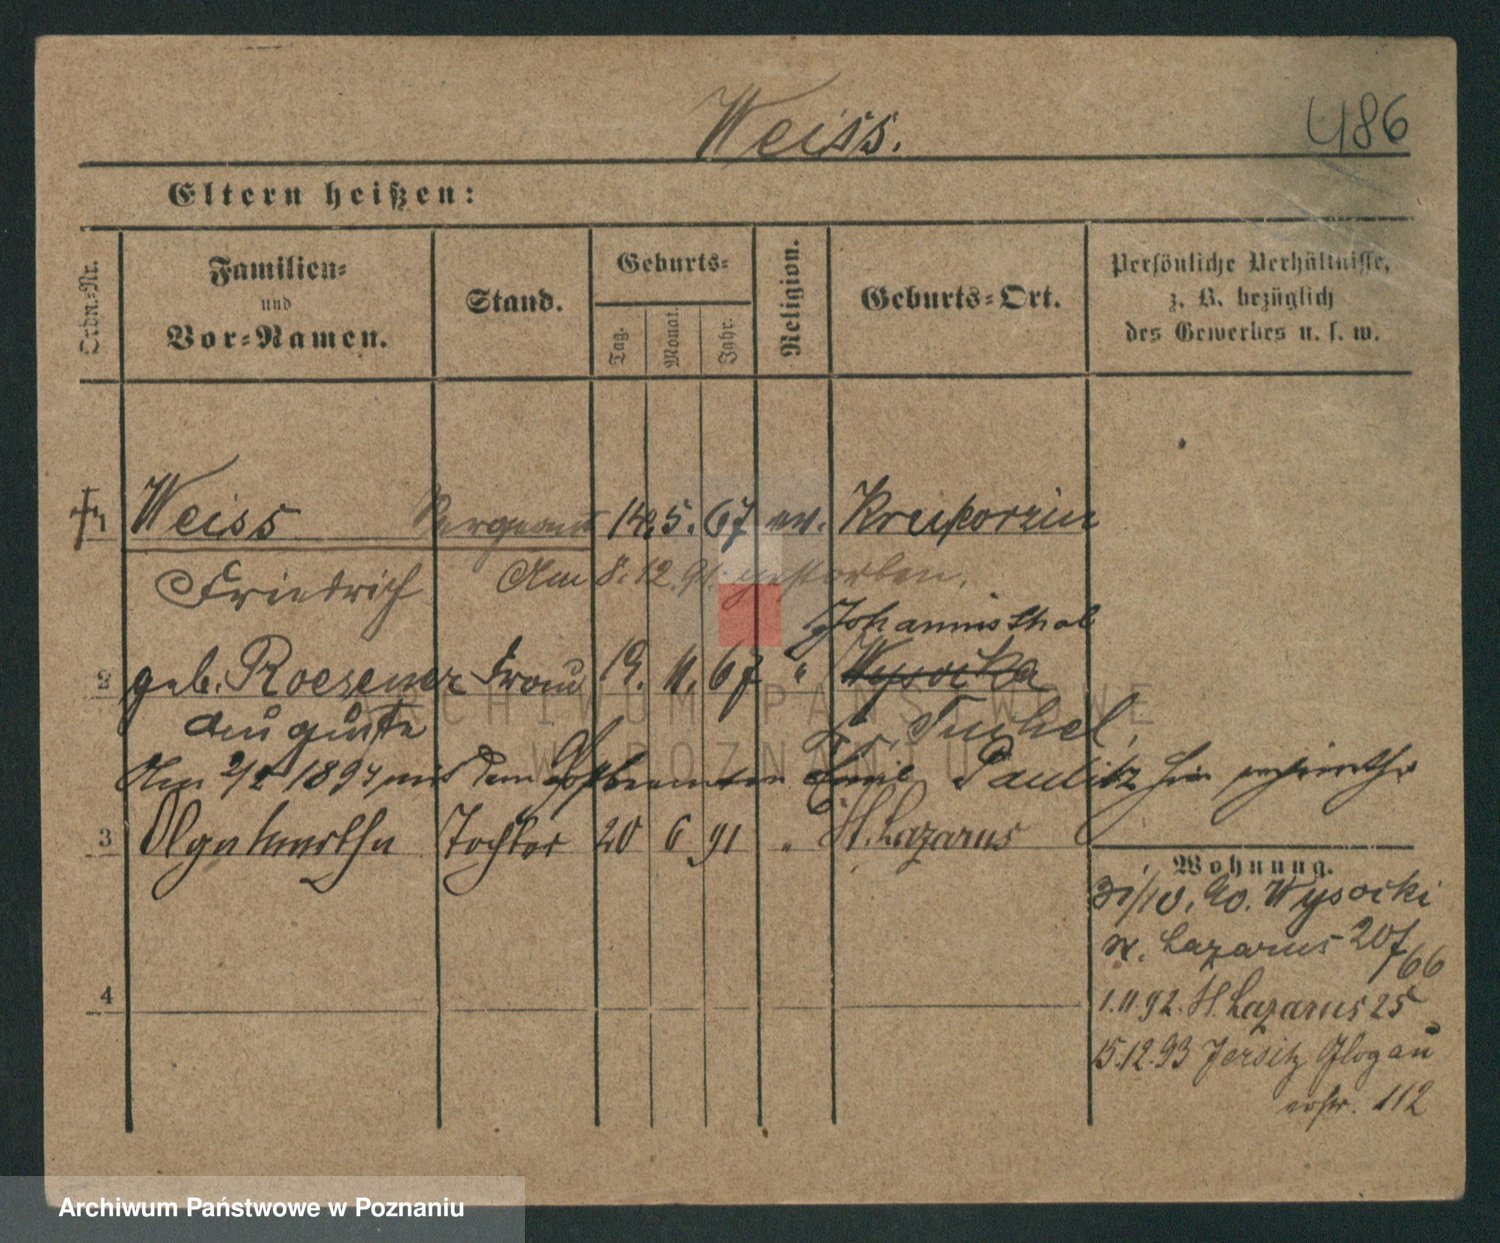 Weiss.
486
Eltern heißen:
Ordn.-Nr.
Familien-
und
Vor-Namen.
Stand.
Geburts-
Tag.
Monat.
Jahr.
Religion.
Geburts-Ort.
Persönliche Verhältnisse,
z. B. bezüglich
des Gewerbes u. s. w.
Weiss Sergeant 14. 5. 67 ev.
Friedrich Am 8.12.91. gestorben.
Johannisthal
2 geb. Roesener Frau 19. 11. 67 " Wysocka
Auguste Kr. Tuchel,
Am 1897 mit dem Emil Paulitz
3 Olga Martha Tochter 20 6 91 " St. Lazarus
Wohnung.
Wysocki
n. Lazarus 20f
/66
1.11.92. St. Lazarus 25
15.12.93 Jersitz Glogau
erstr. 112
4
ARCHIWUM PAŃSTWOWE
W POZNANIU
Archiwum Państwowe w Poznaniu